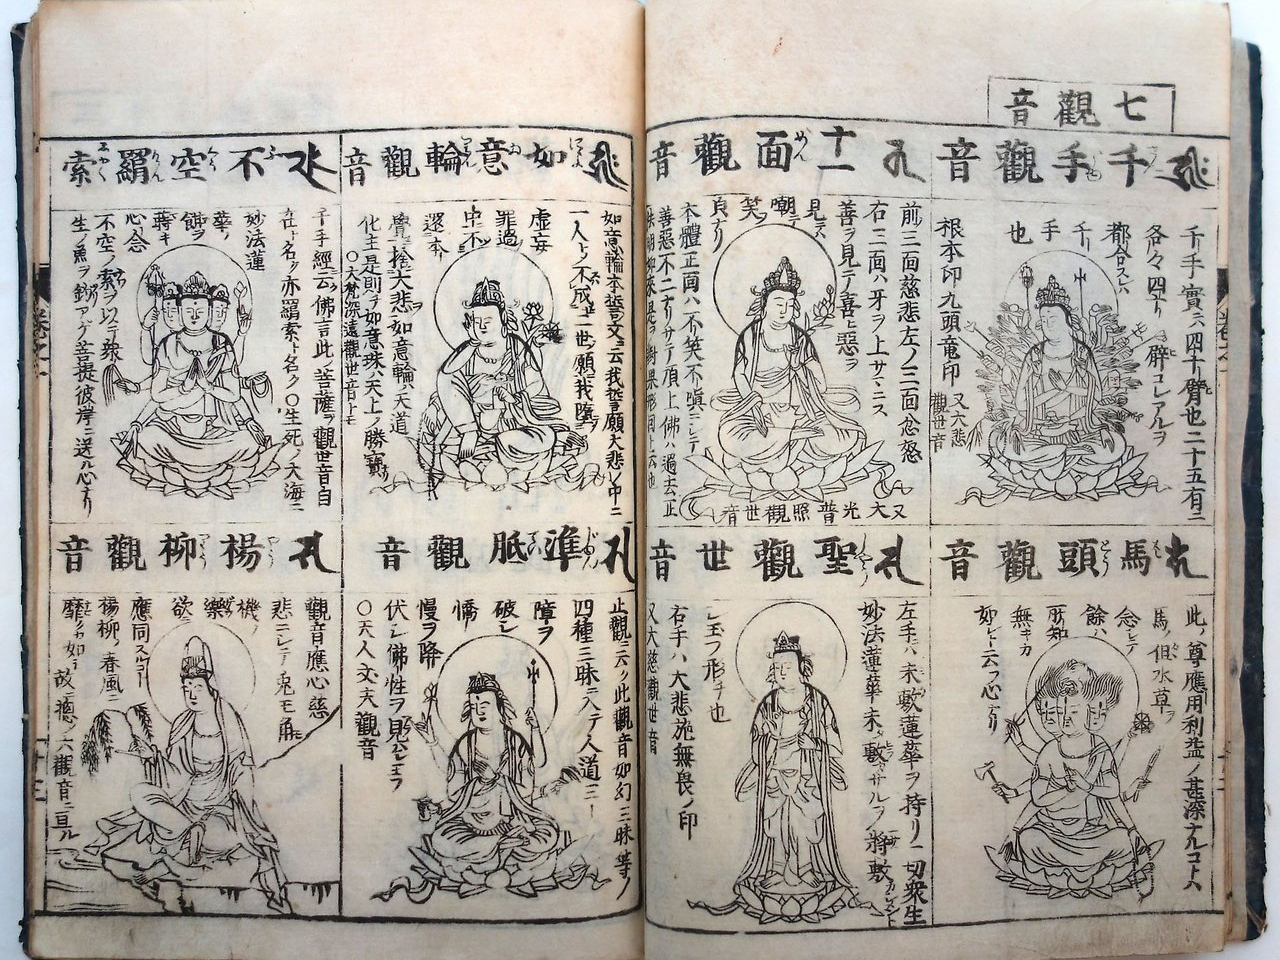 七觀音
千手觀音
千手ノ實ハ四十臂也二十五有ニ
各々四十ノ臂コレアルヲ
都合スレハ
千手
也
根本印九頭竜印
又六悲
觀世音
十一面觀音
前三面慈悲左ノ三面忿怒
右三面ハ牙ヲ上サニス
善ヲ見テ喜ヒ惡ヲ
見テ
嘲テ
笑フ
貞ナリ
本體正面ハ不笑不嗔ニシテ
善惡不二ナリサテ頂上佛ハ過去正
又大光普照觀世音
馬頭觀音
此ノ尊應用利益ノ甚深ナルコトハ
馬ノ但水草ヲ
念シテ
餘ハ
所知
無キカ
如シト云フ心ナリ
聖觀世音
左手ハ未敷蓮華ヲ持リ一切衆生
妙法蓮華未敷サルヲ將敷
シ玉フ形チ也
右手ハ大悲施無畏ノ印
又大慈觀世音
如意輪觀音
如意輪本誓ノ文ニ云我誓願大悲ノ中ニ
一人トノ不成二世ノ願ヲ我墮ツ
虚妄
罪過
中不
還本
覺ニ捨大悲如意輪ハ天道
化主是則ヲ如意珠ハ天上ノ勝寶
〇大梵深遠觀世音トモ
准胝觀音
止觀ニ云ク此觀音如幻三昧等ノ
四種三昧ニ入テ人道三
障ヲ
破シ
憍
慢ヲ降
伏シ佛性ヲ見セシメ玉フ
〇天人丈夫觀音
不空羂索
千手經云佛言此ノ菩薩ヲ觀世音自
在ト名ク亦羂索ト名ク〇生死ノ大海ニ
妙法蓮
華ノ
餌ヲ
蒔キ
心念
不空ノ索ヲ以テ衆
生ノ魚ヲ釣アゲ菩提ノ彼岸ニ送ル心ナリ
楊柳觀音
觀音ノ應心慈
悲ニシテ衆生ノ
機ノ
樂
欲ニ
應同スルコト
楊柳ノ春風ニ
靡クカ如シ
故ニ總シテ六觀音ニ亘ル